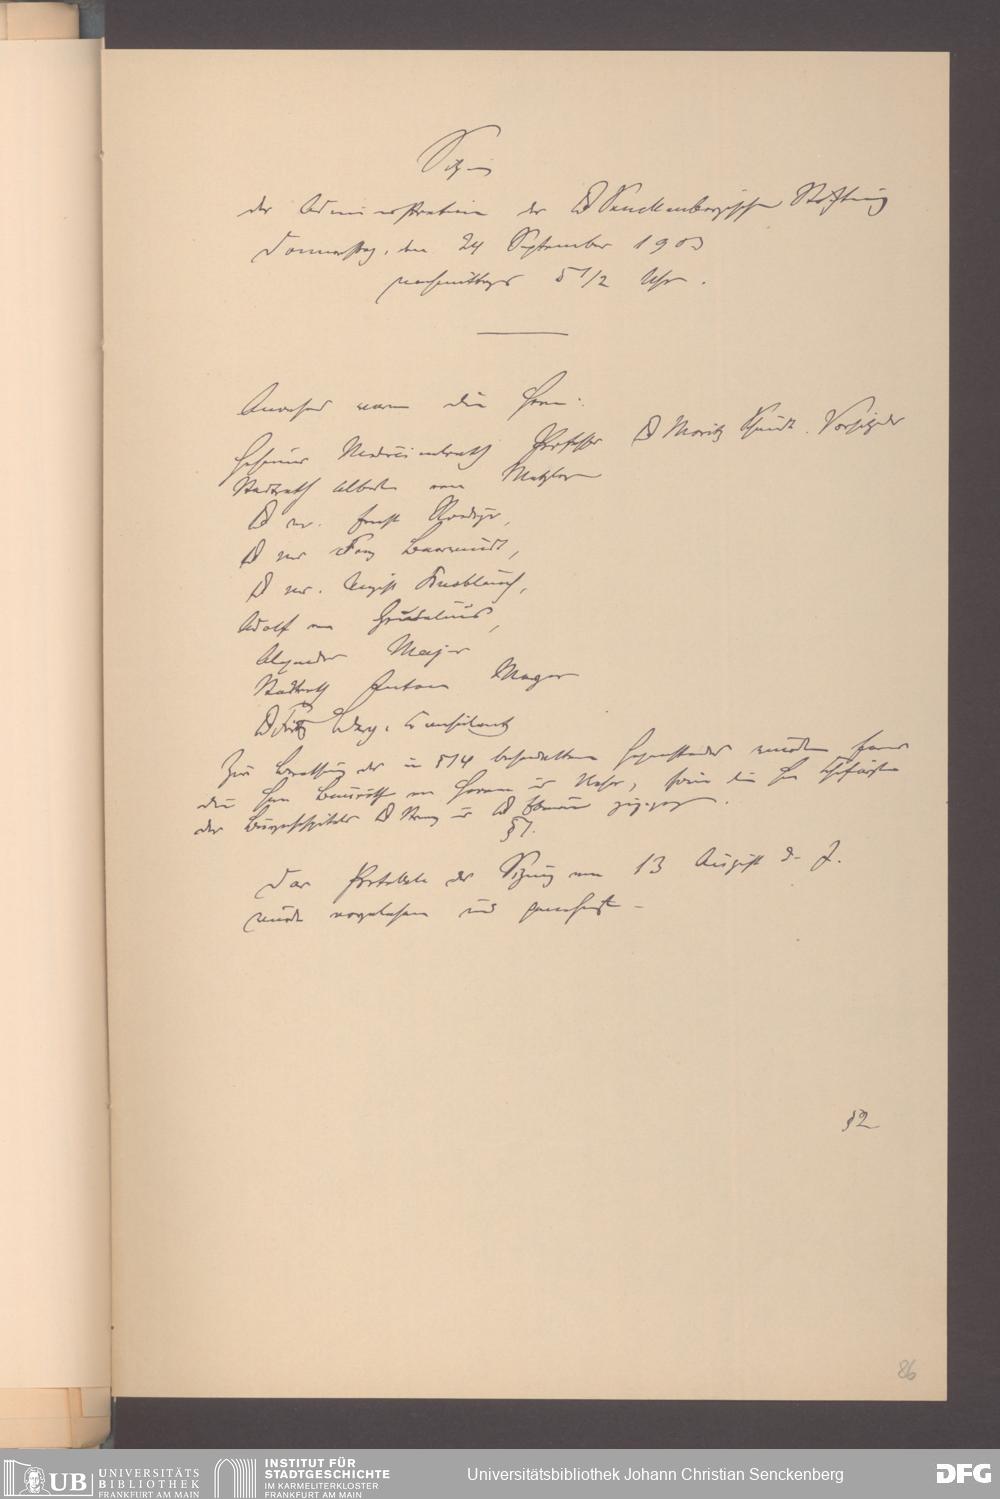 Sitzung
der Administration der Dr Senckenbergischen Stiftung
Donnerstag, den 24 September 1903
nachmittags 5 1/2 Uhr.
Anwesend waren die Herren:
Geheimer Medicinalrath Professor Dr Moritz Schmidt. Vorsitzender
Stadtrath Albert von Metzler
Dr med. Ernst Roediger,
Dr med
Dr med. August Knoblauch,
Adolf von Grunelius,
Alexander Majer
Stadtrath Anton Meyer
Dr Fritz Berg, Consulent
Zur Berathung der in § 14 behandelten Gegenstände wurden ferner
die Herren Bauräthe von Hoven und Neher, sowie die Herren Chefärzte
des Bürgerhospitals Dr und Dr zugezogen.
§ 1.
Das Protokoll der Sitzung vom 13 August d. J.
wurde vorgelesen und genehmigt.
§ 2
86
UB UNIVERSITÄTS
BIBLIOTHEK
FRANKFURT AM MAIN
INSTITUT FÜR
STADTGESCHICHTE
IM KARMELITERKLOSTER
FRANKFURT AM MAIN
Universitätsbibliothek Johann Christian Senckenberg
DFG